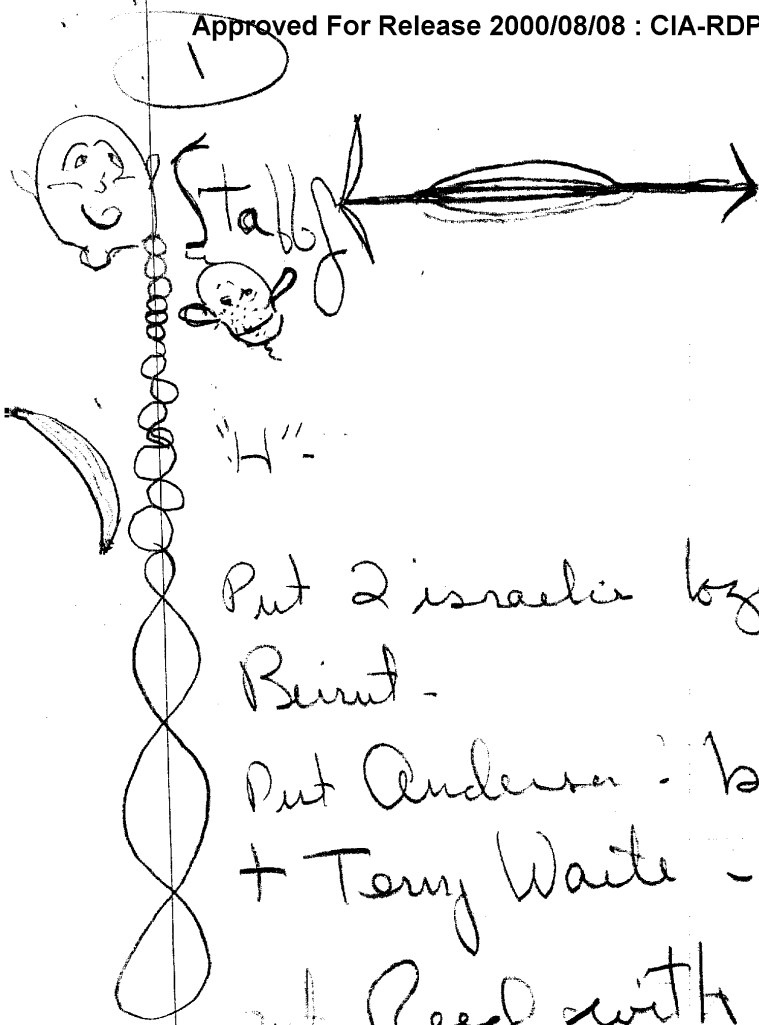 Approved For Release 2000/08/08 : CIA-RDP
1
Staff
"H" -
Put 2 israelis
Beirut -
Put Anderson : b
+ Terry Waite -
Reed with